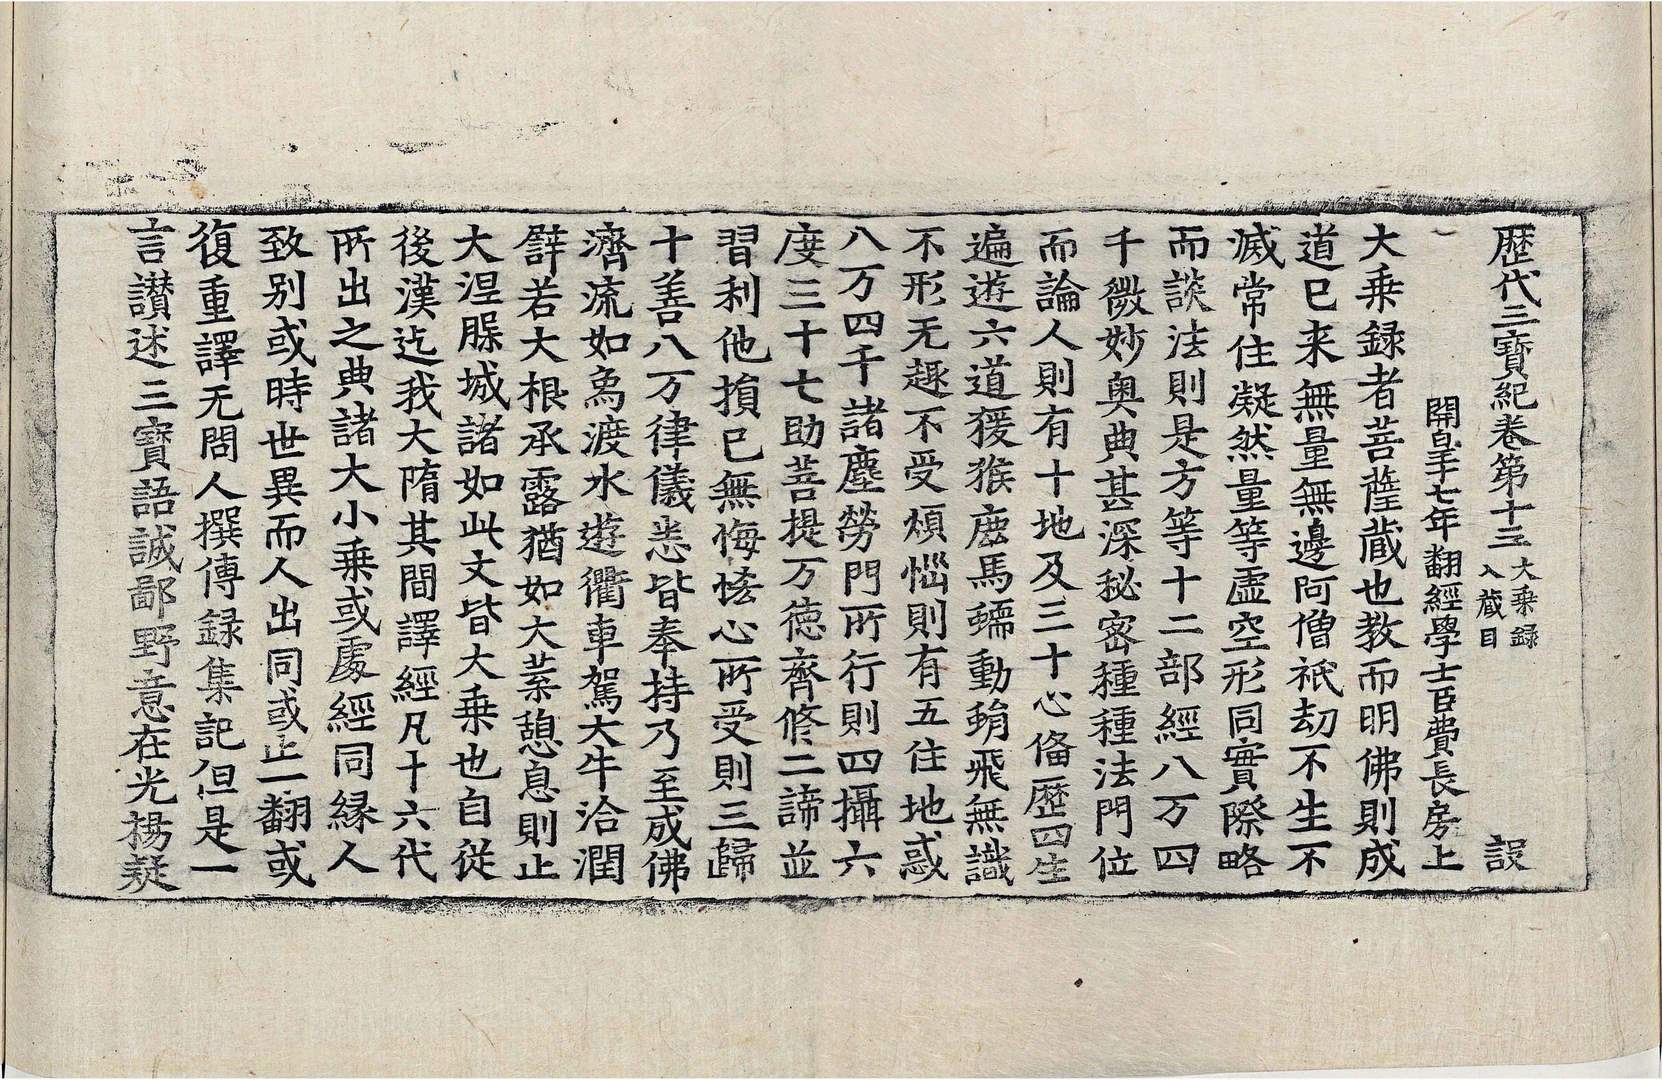 歷代三寶紀卷第十三 大乗録入蔵目 誤
開皇十七年翻經學士臣費長房上
大乗録者菩薩蔵也教而明佛則成
道已来無量無邊阿僧祇劫不生不
滅常住凝然量等虛空形同實際略
而談法則是方等十二部經八万四
千微妙奥典甚深秘密種種法門位
而論人則有十地及三十心俻歷四生
遍遊六道猨猴鹿馬蠕動蜎飛無識
不形无趣不受煩惱則有五住地惑
八万四千諸塵勞門所行則四攝六
度三十七助菩提万德齊修二諦並
習利他損已無悔恡心所受則三歸
十善八万律儀悉皆奉持乃至成佛
濟流如象渡水遊衢車駕大牛洽潤
譬若大根承露猶如大葉憩息則止
大涅䐧城諸如此文皆大乗也自從
後漢迄我大隋其間譯經凡十六代
所出之典諸大小乗或處經同縁人
致别或時世異而人出同或止一翻或
復重譯无問人撰傳録集記但是一
言讃述三寶語誠鄙野意在光揚疑